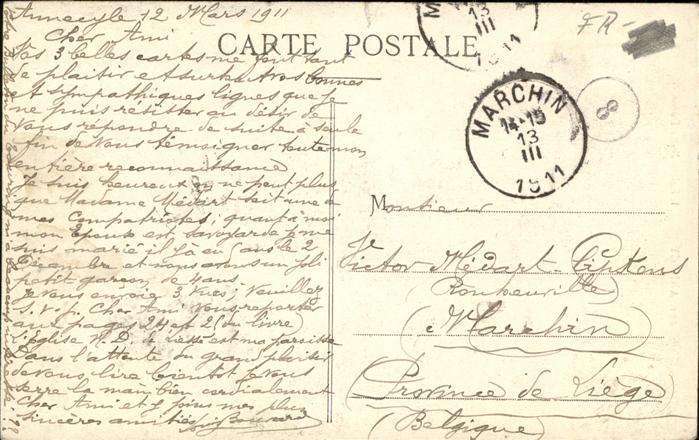 Annecy le 12 Mars 1911
Cher Ami
Vos 3 belles cartes me font tant
de plaisir et surtout vos bonnes
et sympathiques lignes que je
ne puis résister au désir de
vous répondre de suite à seule
fin de vous témoigner toute mon
entière reconnaissance
Je suis heureux on ne peut plus
que Madame Médart soit une de
mes Compatriotes; quant à moi
mon Epouse est savoyarde je me
suis marié il y a 5 ans le 2
Décembre et nous avons un joli
petit garçon de 4 ans.
Je vous envoie 3 vues; Veuillez
S.V.P. Cher Ami vous reporter
aux pages 24 et 25 du livre
l'Eglise N.D. de est ma paroisse
Dans l'attente du grand plaisir
de vous lire bientôt je vous
serre la main bien cordialement
Cher Ami et y joins mes plus
sincères amitiés
CARTE POSTALE
FR-
MARCHIN
13
III
1911
MARCHIN
14-15
13
III
1911
8
Monsieur
Victor Médart-
(Marchin)
(Province de Liège)
(Belgique)